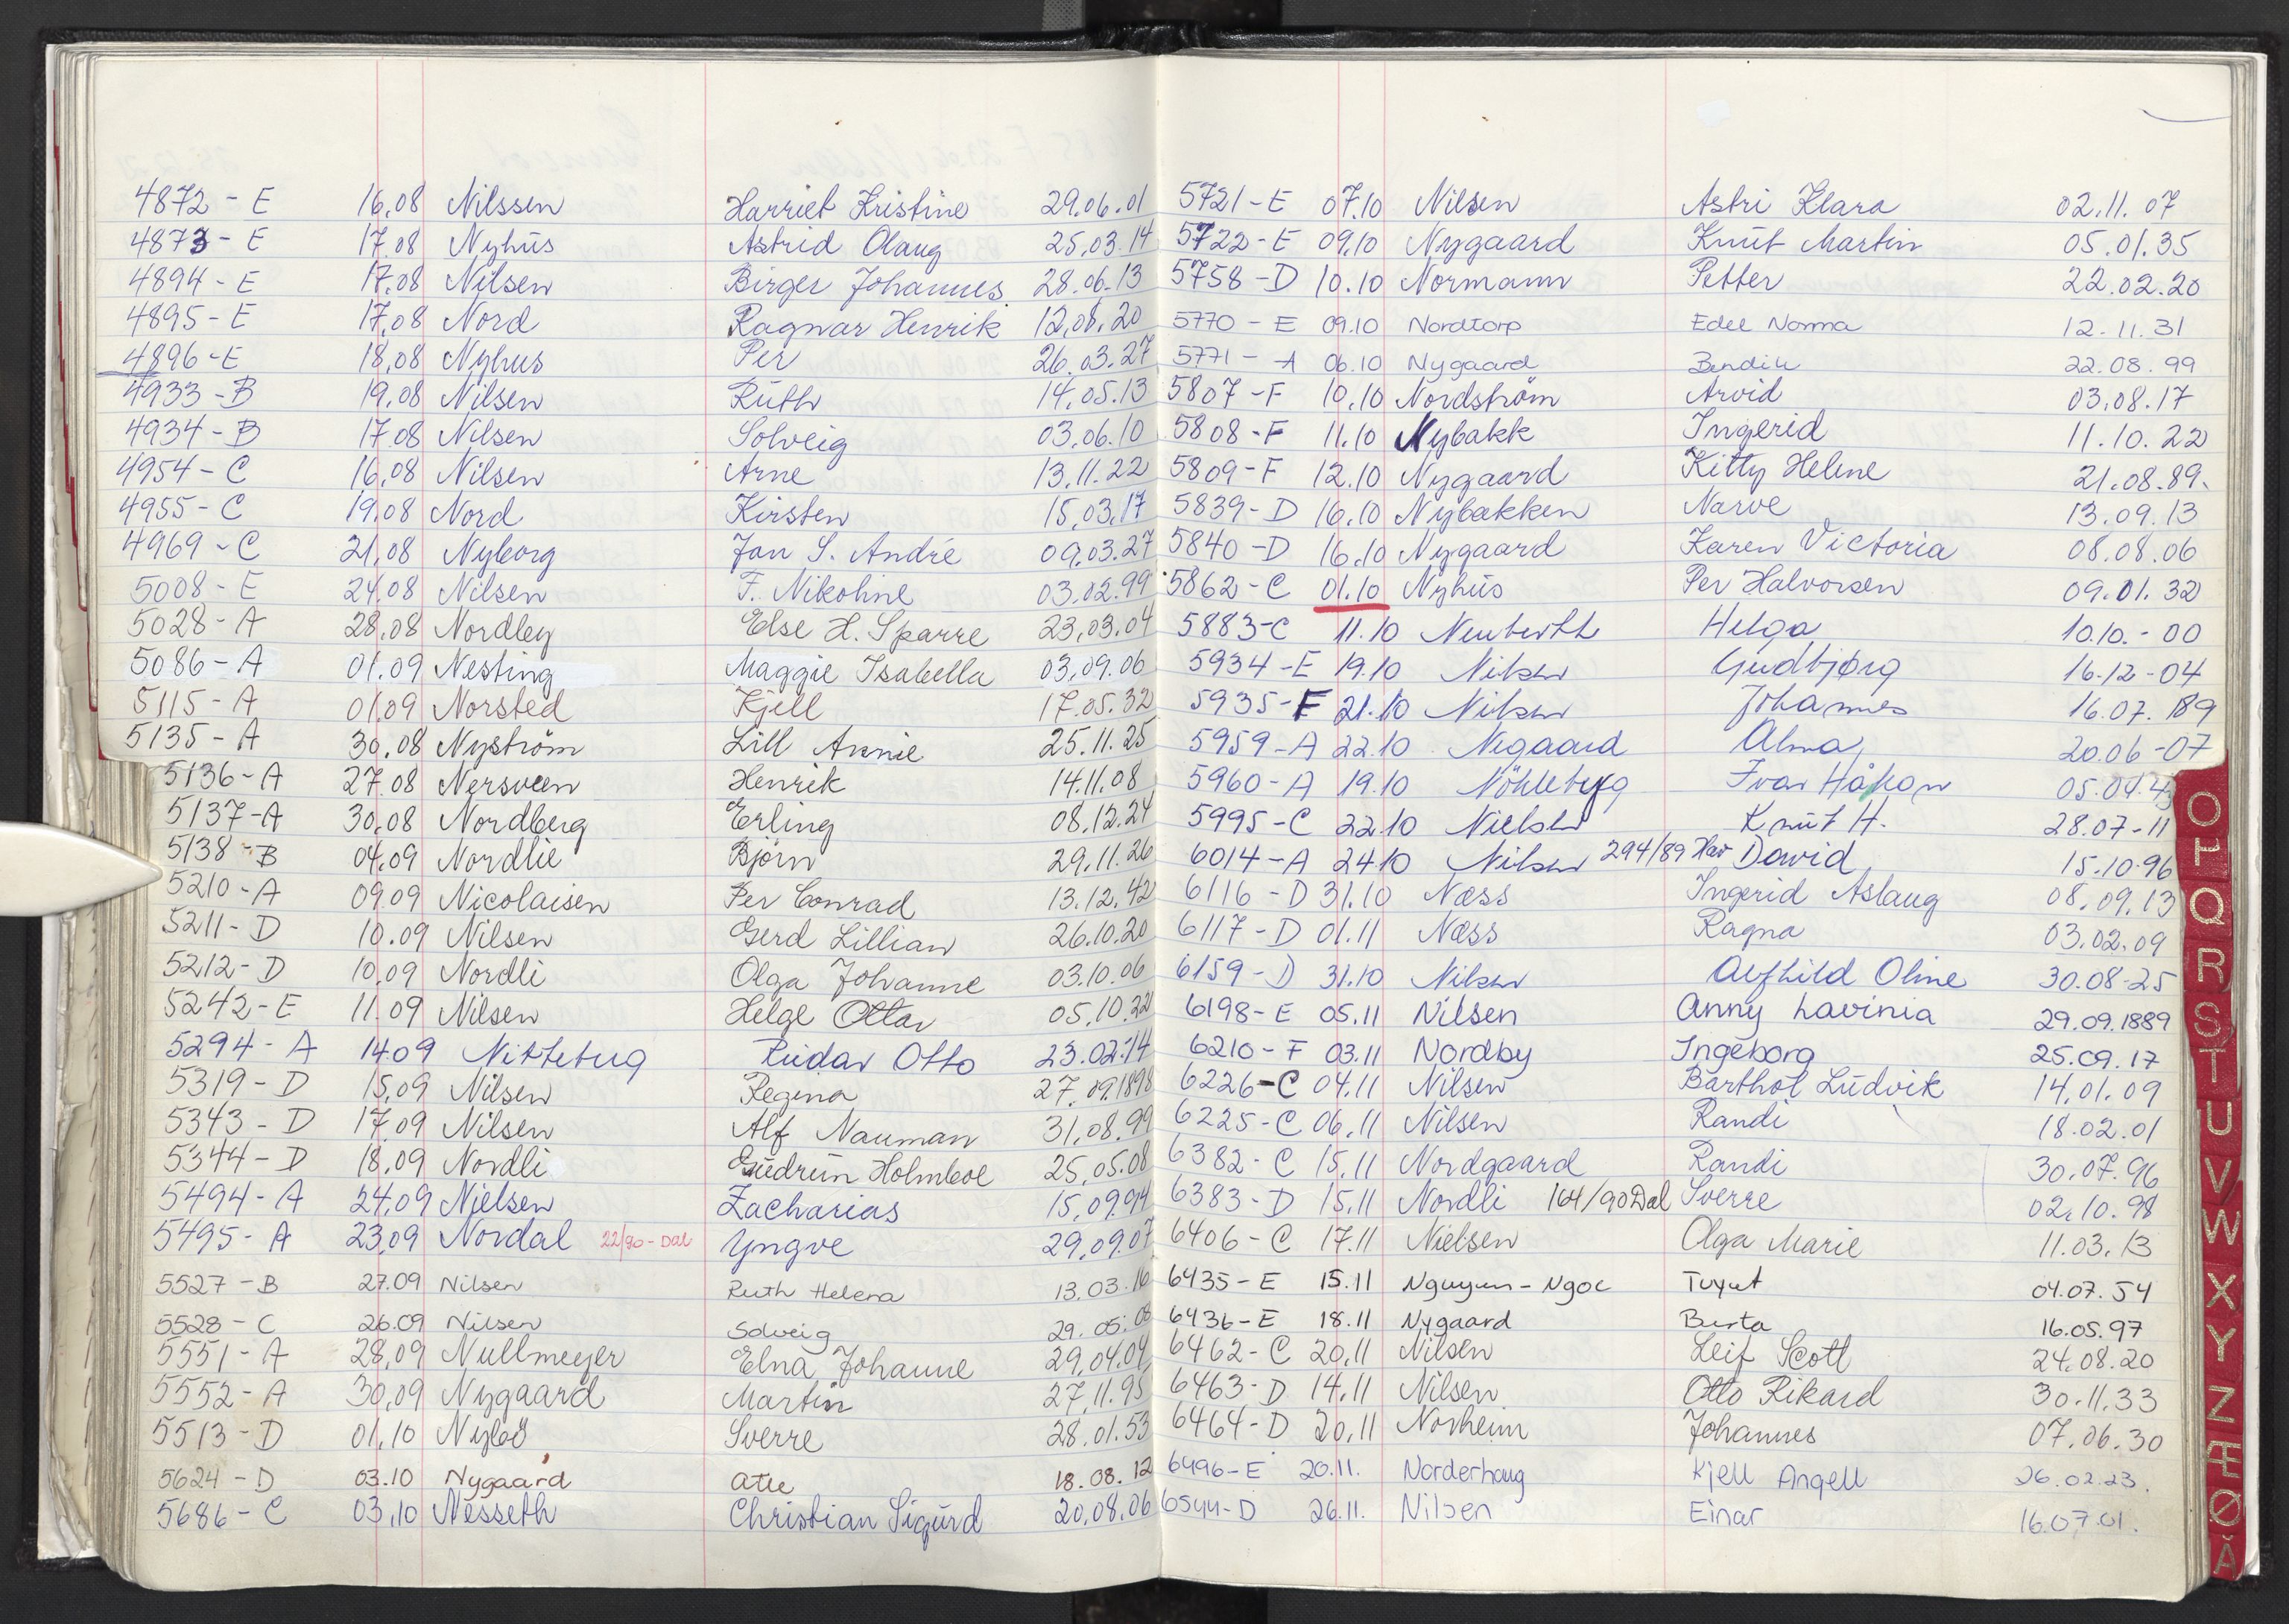 4872 - E 16.08 Nilssen Harriet Kristine 29.06.01
4873 - E 17.08 Nyhus Astrid Olaug 25.03.14
4894 - E 17.08 Nilsen Birger Johannes 28.06.13
4895 - E 17.08 Nord Ragnar Henrik 12.08.20
4896 - E 18.08 Nyhus Per 26.03.27
4933 - B 19.08 Nilsen Ruth 14.05.13
4934 - B 17.08 Nilsen Solveig 03.06.10
4954 - C 16.08 Nilsen Arne 13.11.22
4955 - C 19.08 Nord Kirsten 15.03.17
4969 - C 21.08 Nyborg Jan S. André 09.03.27
5008 - E 24.08 Nilsen F. Nikoline 03.02.99
5028 - A 28.08 Nordley Else H. Sparre 23.03.04
5086 - A 01.09 Nesting Maggie Isabella 03.09.06
5115 - A 01.09 Norsted Kjell 17.05.32
5135 - A 30.08 Nyström Lill Annie 25.11.25
5136 - A 27.08 Nersveen Henrik 14.11.08
5137 - A 30.08 Nordberg Erling 08.12.24
5138 - B 04.09 Nordlie Bjørn 29.11.26
5210 - A 09.09 Nicolaisen Per Conrad 13.12.42
5211 - D 10.09 Nilsen Gerd Lillian 26.10.20
5212 - D 10.09 Nordli Olga Johanne 03.10.06
5242 - E 11.09 Nilsen Helge Ottar 05.10.22
5294 - A 14.09 Nitteberg Reidar Otto 23.02.14
5319 - D 15.09 Nilsen Regina 27.09.1898
5343 - D 17.09 Nilsen Alf Nauman 31.08.99
5344 - D 18.09 Nordli Gudrun Holmboe 25.05.08
5494 - A 24.09 Nielsen Zacharias 15.09.94
5495 - A 23.09 Nordal 22/90 - Dal Yngve 29.09.07
5527 - B 27.09 Nilsen Ruth Helena 13.03.16
5528 - C 26.09 Nilsen Solveig 29.05.08
5551 - A 28.09 Nullmeyer Elna Johanne 29.04.04
5552 - A 30.09 Nygaard Martin 27.11.95
5513 - D 01.10 Nybø Sverre 28.01.53
5624 - D 03.10 Nygaard Atle 18.08.12
5686 - C 03.10 Nesseth Christian Sigurd 20.08.06
5721 - E 07.10 Nilsen Astri Klara 02.11.07
5722 - E 09.10 Nygaard Knut Martin 05.01.35
5758 - D 10.10 Normann Petter 22.02.20
5770 - E 09.10 Nordtorp Edel Norma 12.11.31
5771 - A 06.10 Nygaard Bendik 22.08.99
5807 - F 10.10 Nordstrøm Arvid 03.08.17
5808 - F 11.10 Nybakk Ingerid 11.10.22
5809 - F 12.10 Nygaard Kitty Helene 21.08.89.
5839 - D 16.10 Nybakken Narve 13.09.13
5840 - D 16.10 Nygaard Karen Victoria 08.08.06
5862 - C 01.10 Nyhus Per Halvorsen 09.01.32
5883 - C 11.10 Neuberth Helga 10.10.-00
5934 - E 19.10 Nilsen Gudbjørg 16.12-04
5935 - F 21.10 Nilsen Johannes 16.07.189
5959 - A 22.10 Negaard Alma 20.06-07
5960 - A 19.10 Nøkleby Ivar Håkon 05.04.43
5995 - C 22.10 Nielsen Knut H. 28.07-11
6014 - A 24.10 Nilsen 294/89 Har David 15.10.96
6116 - D 31.10 Næss Ingerid Aslaug 08.09.13
6117 - D 01.11 Næss Ragna 03.02.09
6159 - D 31.10 Nilsen Alfhild Oline 30.08-25
6198 - E 05.11 Nilsen Anny Lavinia 29.09.1889
6210 - F 03.11 Nordby Ingeborg 25.09.17
6226 - C 04.11 Nilsen Barthol Ludvik 14.01.09
6225 - C 06.11 Nilsen Randi 18.02.01
6382 - C 15.11 Nordgaard Randi 30.07.96
6383 - D 15.11 Nordli 164/90 Dal Sverre 02.10.98
6406 - C 17.11 Nielsen Olga Marie 11.03.13
6435 - E 15.11 Nguyen - Ngoc Tuyet 04.07.54
6436 - E 18.11 Nygaard Berta 16.05.97
6462 - C 20.11 Nilsen Leif Scott 24.08.20
6463 - D 14.11 Nilsen Otto Rikard 30.11.33
6464 - D 20.11 Norheim Johannes 07.06.30
6496 - E 20.11. Norderhaug Kjell Angell 26.02.23.
6544 - D 26.11. Nilsen Einar 16.07.01.
O
P
Q
R
S
T
U
V
W
X
Y
Z
Æ
Ø
Å